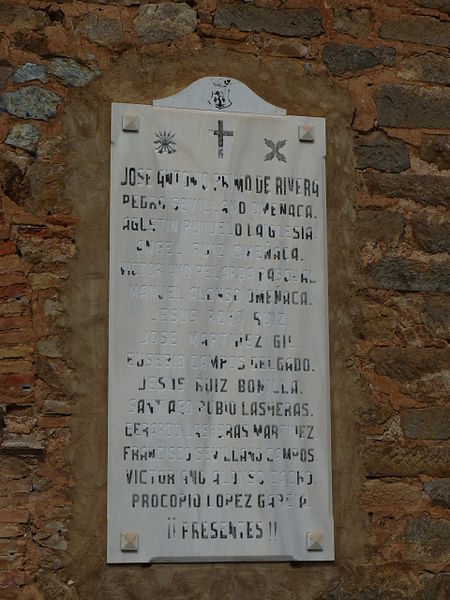 JOSE ANTONIO PRIMO DE RIVERA
PEDRO SEVILLANO OMEÑACA.
AGUSTIN PUYUELO LA IGLESIA.
ANGEL RUIZ OMEÑACA.
VICTORIANO PELARDA PASCUAL
MANUEL ALONSO OMEÑACA.
JESUS ROYO RUIZ.
JOSE MARTINEZ GIL.
EUSEBIO CAMPOS DELGADO.
JESUS RUIZ BONILLA.
SANTIAGO RUBIO LASHERAS.
GERARDO LASHERAS MARTINEZ.
FRANCISCO SEVILLANO CAMPOS
VICTORIANO ALONSO CACHO.
PROCOPIO LOPEZ GARCIA.
¡¡ PRESENTES !!